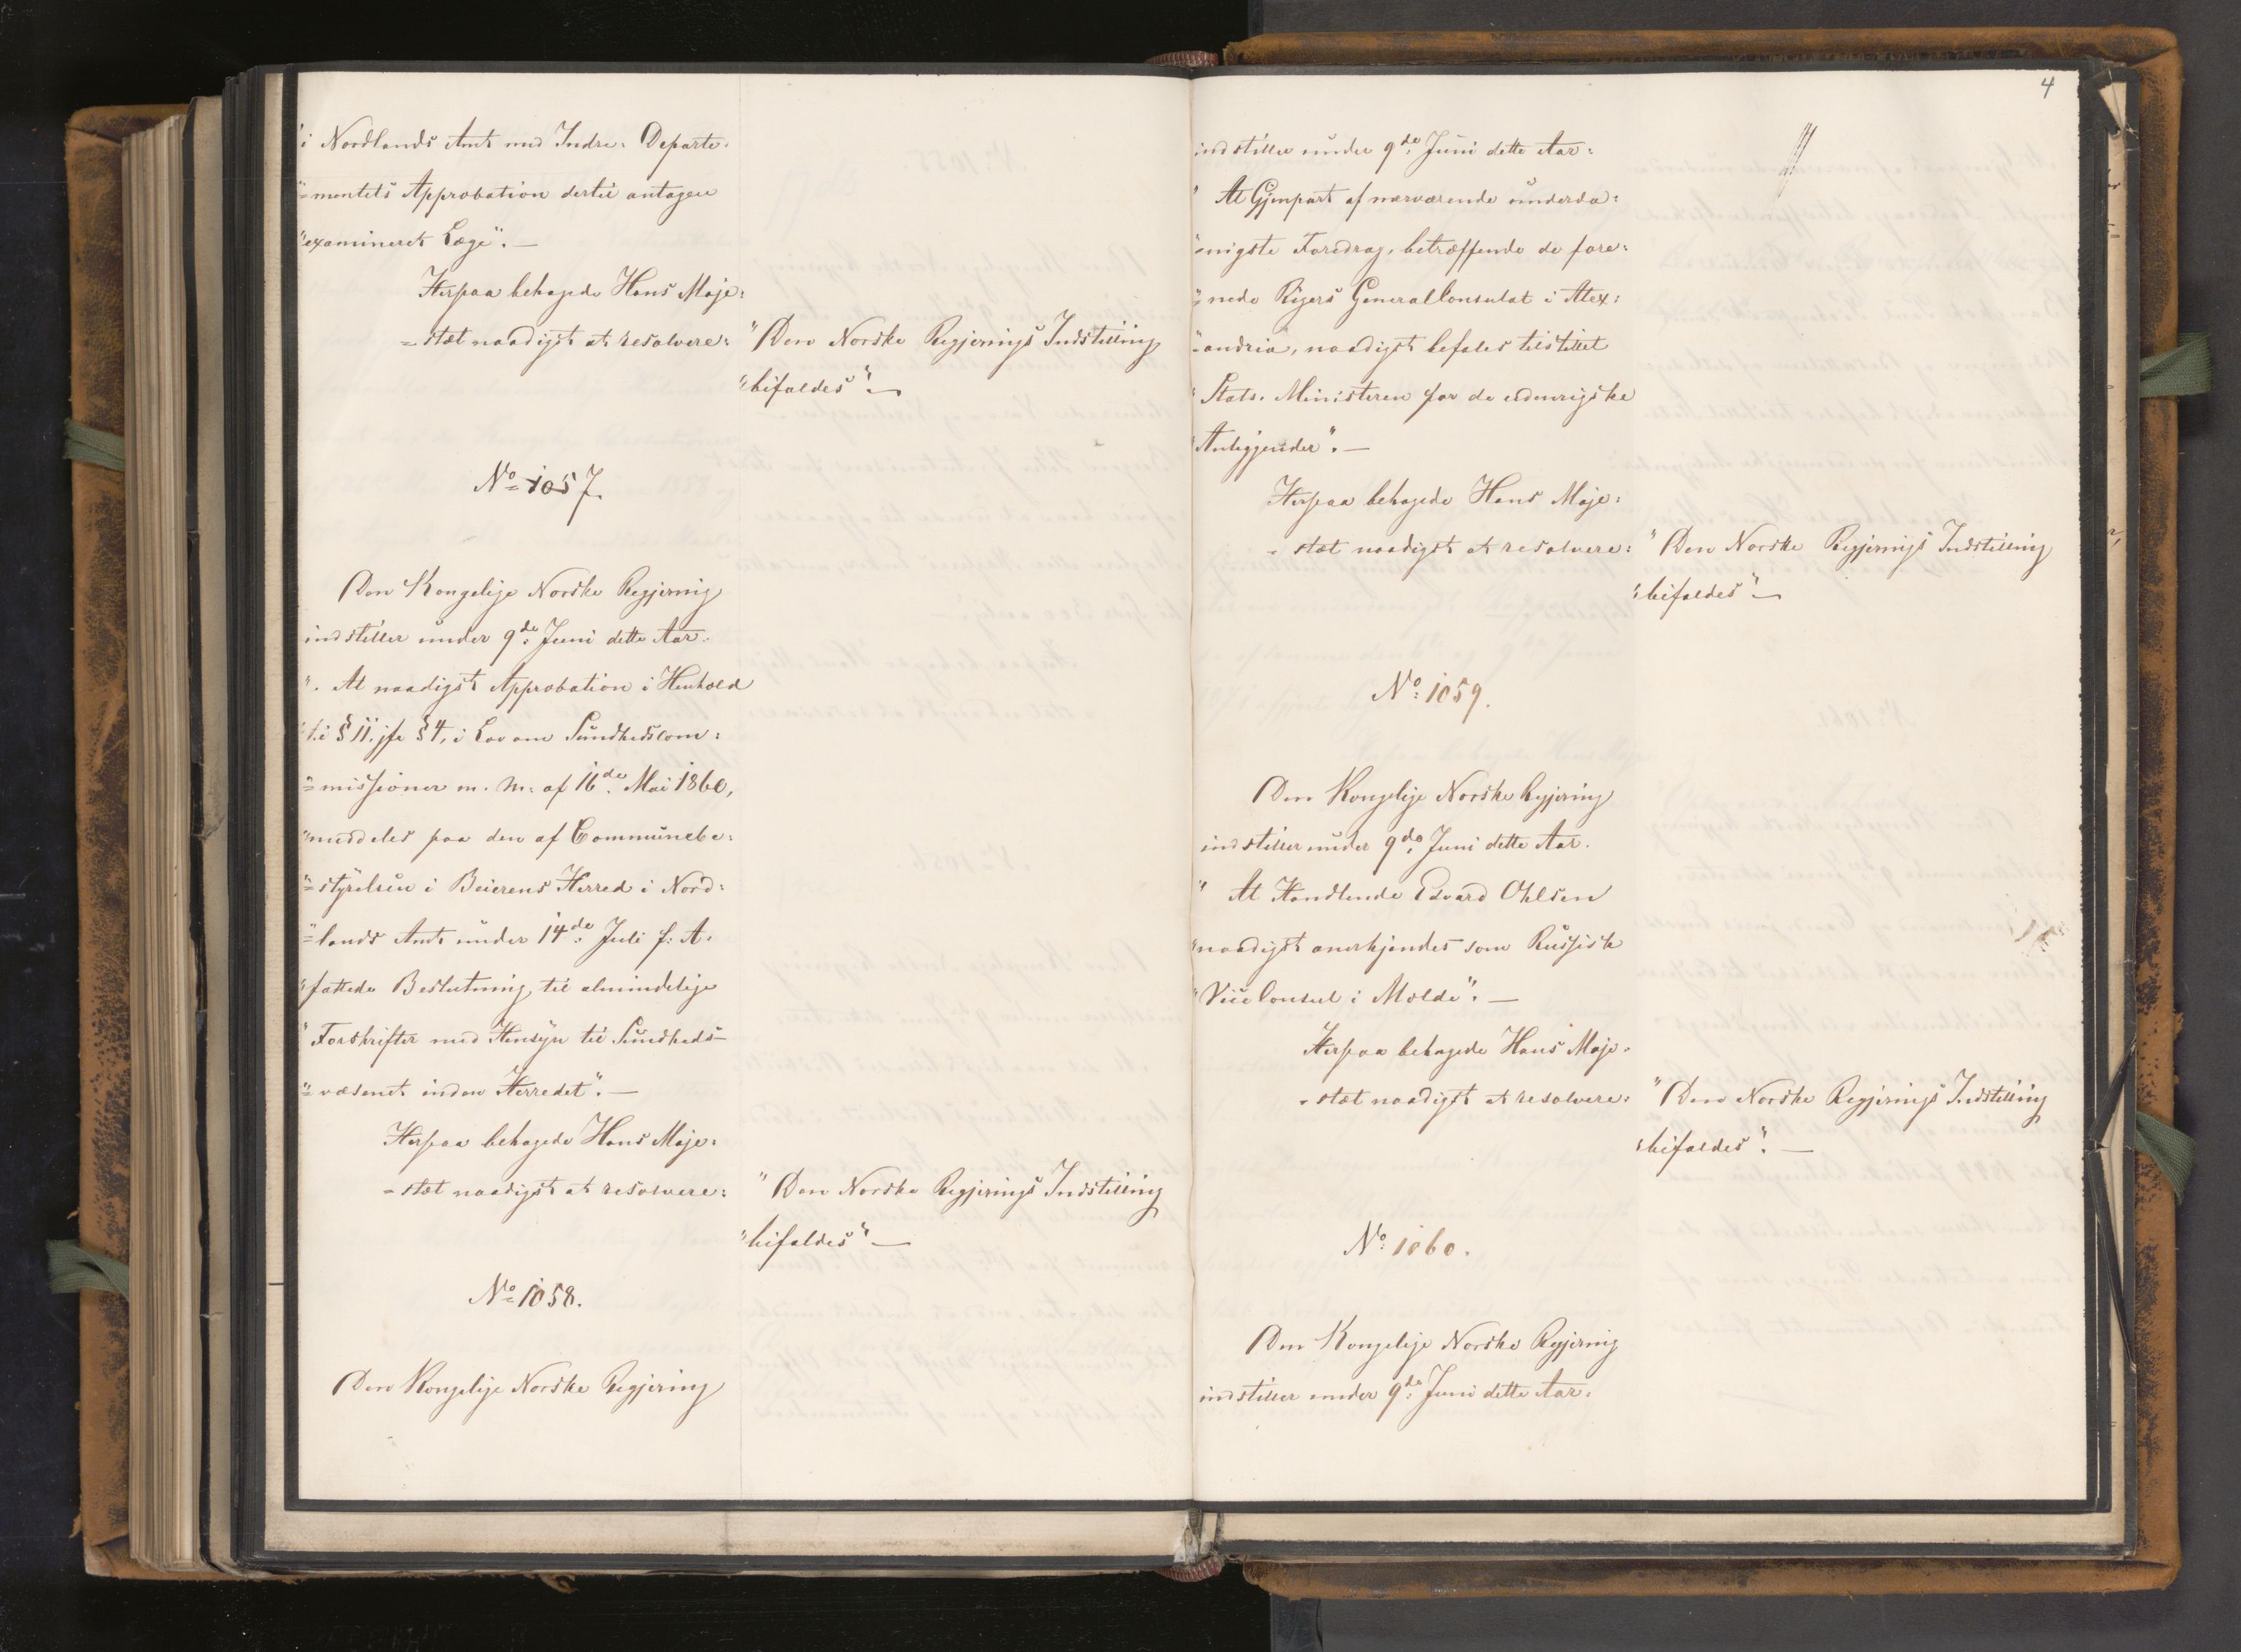 "i Nordlands Amt med Indre-Departe-
"=mentets Approbation dertil antagen
"examineret Læge". —
Herpaa behagede Hans Maje-
=stæt naadigst at resolvere:
"Den Norske Regjerings Indstilling
"bifaldes". —
No 1057.
Den Kongelige Norske Regjering
indstiller under 9de Juni dette Aar.
". At naadigst Approbation i Henhold
"til § 11. jfr § 4, i Lov om Sundhedscom-
"=missioner m. m. af 16de Mai 1860,
"meddeles paa den af Communebe-
"=styrelsen i Beierens Herred i Nord-
"=lands Amt under 14de Juli f. A.
"fattede Beslutning til almindelige
"Forskrifter med Hensyn til Sundheds-
"=væsenet inden Herredet". —
Herpaa behagede Hans Maje-
=stæt naadigst at resolvere:
"Den Norske Regjerings Indstilling
"bifaldes". —
No 1058.
Den Kongelige Norske Regjering
4
indstiller under 9de Juni dette Aar:
" At Gjenpart af nærværende underda-
"=nigste Foredrag, betræffende de fore-
"=nede Rigers GeneralConsulat i Alex-
"=andria, naadigst befales tilstillet
"Stats-Ministeren for de udenrigske
"Anliggender". —
Herpaa behagede Hans Maje-
=stæt naadigst at resolvere:
"Den Norske Regjerings Indstilling
"bifaldes". —
No 1059.
Den Kongelige Norske Regjering
indstiller under 9de Juni dette Aar.
" At Handlende Edvard Ohlsen
"naadigst anerkjendes som Russisk
"ViceConsul i Molde". —
Herpaa behagede Hans Maje-
=stæt naadigst at resolvere:
"Den Norske Regjerings Indstilling
"bifaldes". —
No 1060.
Den Kongelige Norske Regjering
indstiller under 9de Juni dette Aar: